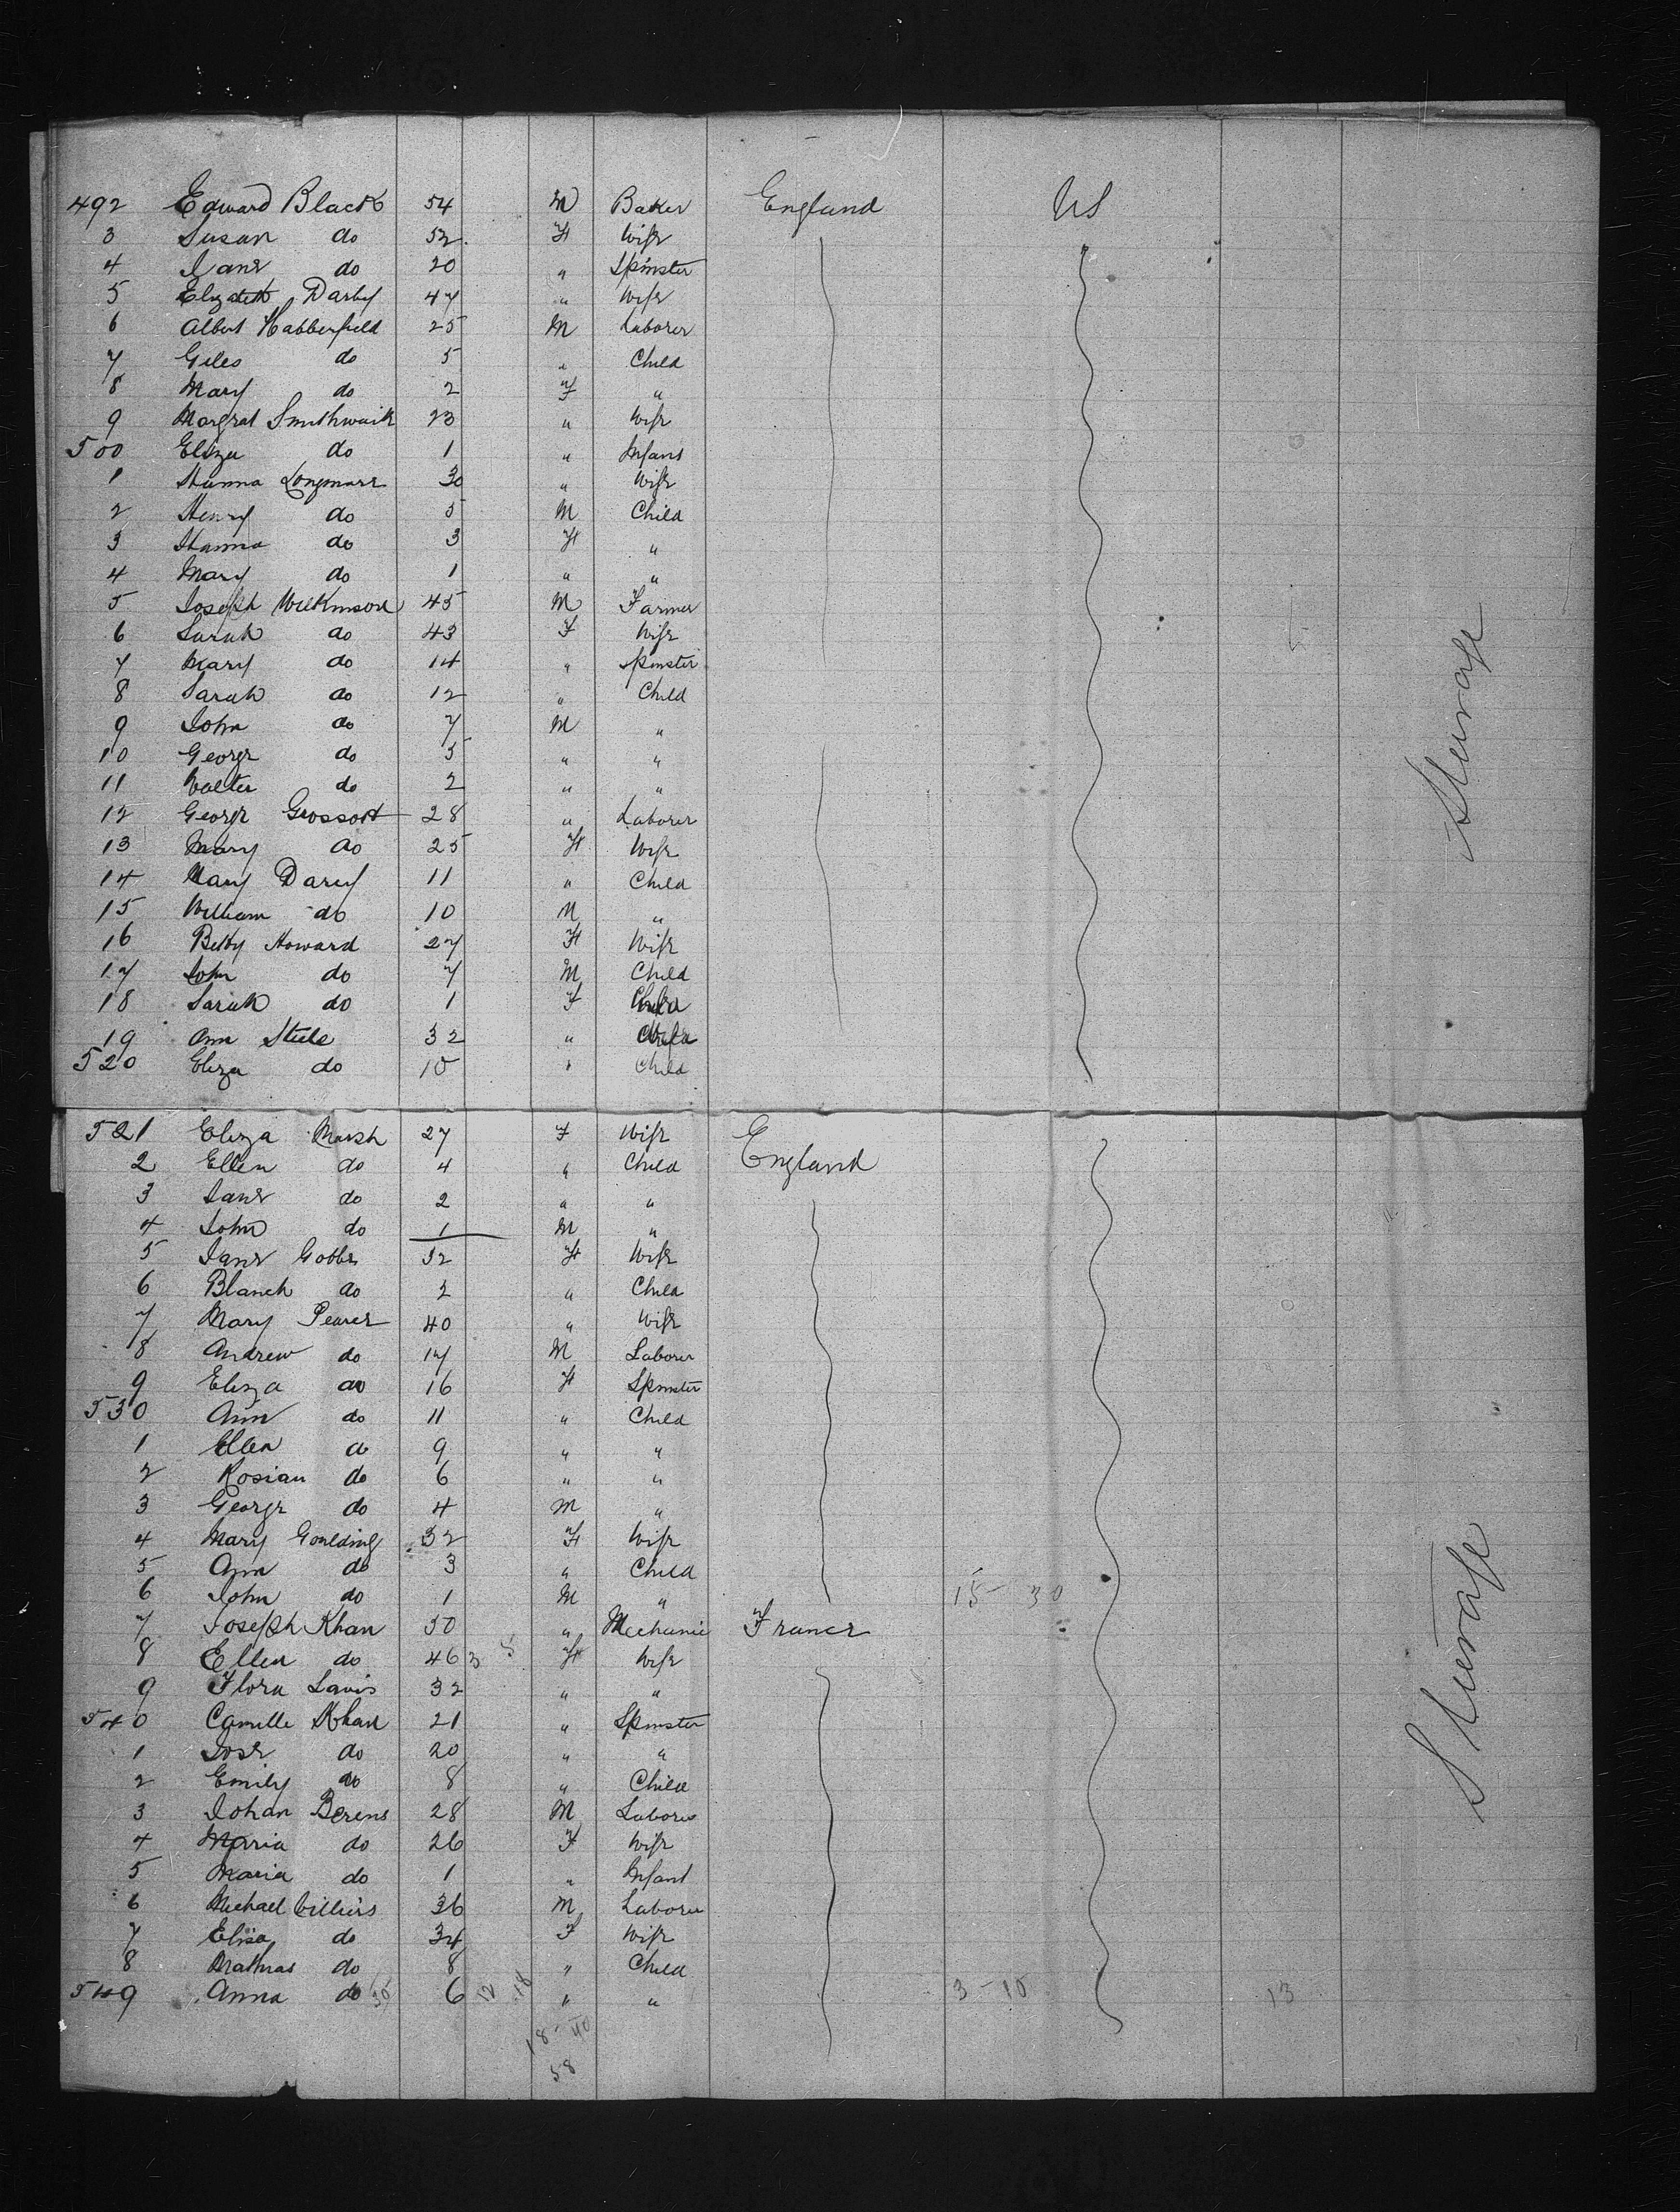 492 Edward Black 54 M Baker England US
3 Susan do 52 F Wife
4 Jane do 20 " Spinster
5 Elizabeth Darby 47 " Wife
6 Albert Habberfield 25 M Laborer
7 Giles do 5 " Child
8 Mary do 2 F "
9 Margrat Smithwaik 23 " Wife
500 Eliza do 1 " Infant
1 Hanna Longmare 30 " Wife
2 Henry do 5 M Child
3 Hanna do 3 F "
4 Mary do 1 " "
5 Joseph Wilkinson 45 M Farmer
6 Sarah do 43 F Wife
7 Mary do 14 " Spinster
8 Sarah do 12 " Child
9 John do 7 M "
10 George do 5 " "
11 Walter do 2 " "
12 George Grossort 28 " Laborer
13 Mary do 25 F Wife
14 Mary Darcy 11 " Child
15 William do 10 M "
16 Betty Howard 27 F Wife
17 John do 7 M Child
18 Sarah do 1 F Child
19 Ann Steele 32 "
520 Eliza do 10 " Child
Steerage
521 Eliza Marsh 27 F Wife
2 Ellen do 4 " Child England
3 Jane do 2 " "
4 John do 1 M "
5 Jane Gobbe 32 F Wife
6 Blanch do 2 " Child
7 Mary Pearce 40 " Wife
8 Andrew do 17 M Laborer
9 Eliza do 16 F Spinster
530 Ann do 11 " Child
1 Ellen do 9 " "
2 Rosian do 6 " "
3 George do 4 M "
4 Mary Goulding 32 F Wife
5 Ann do 3 " Child
6 John do 1 M " 15 30
7 Joseph Khan 50 " Mechanic France
8 Ellen do 46 3 5 F Wife
9 Flora Lavis 32 " "
540 Camille Khan 21 " Spinster
1 Jose do 20 " "
2 Emily do 8 " Child
3 Johan Berens 28 M Laborer
4 Maria do 26 F Wife
5 Maria do 1 " Infant
6 Michael Cilliers 36 M Laborer
7 Elisa do 34 F Wife
8 Mathias do 8 " Child
549 Anna do 30 6 12 18 " " 3-10 13
18-40
58
Steerage